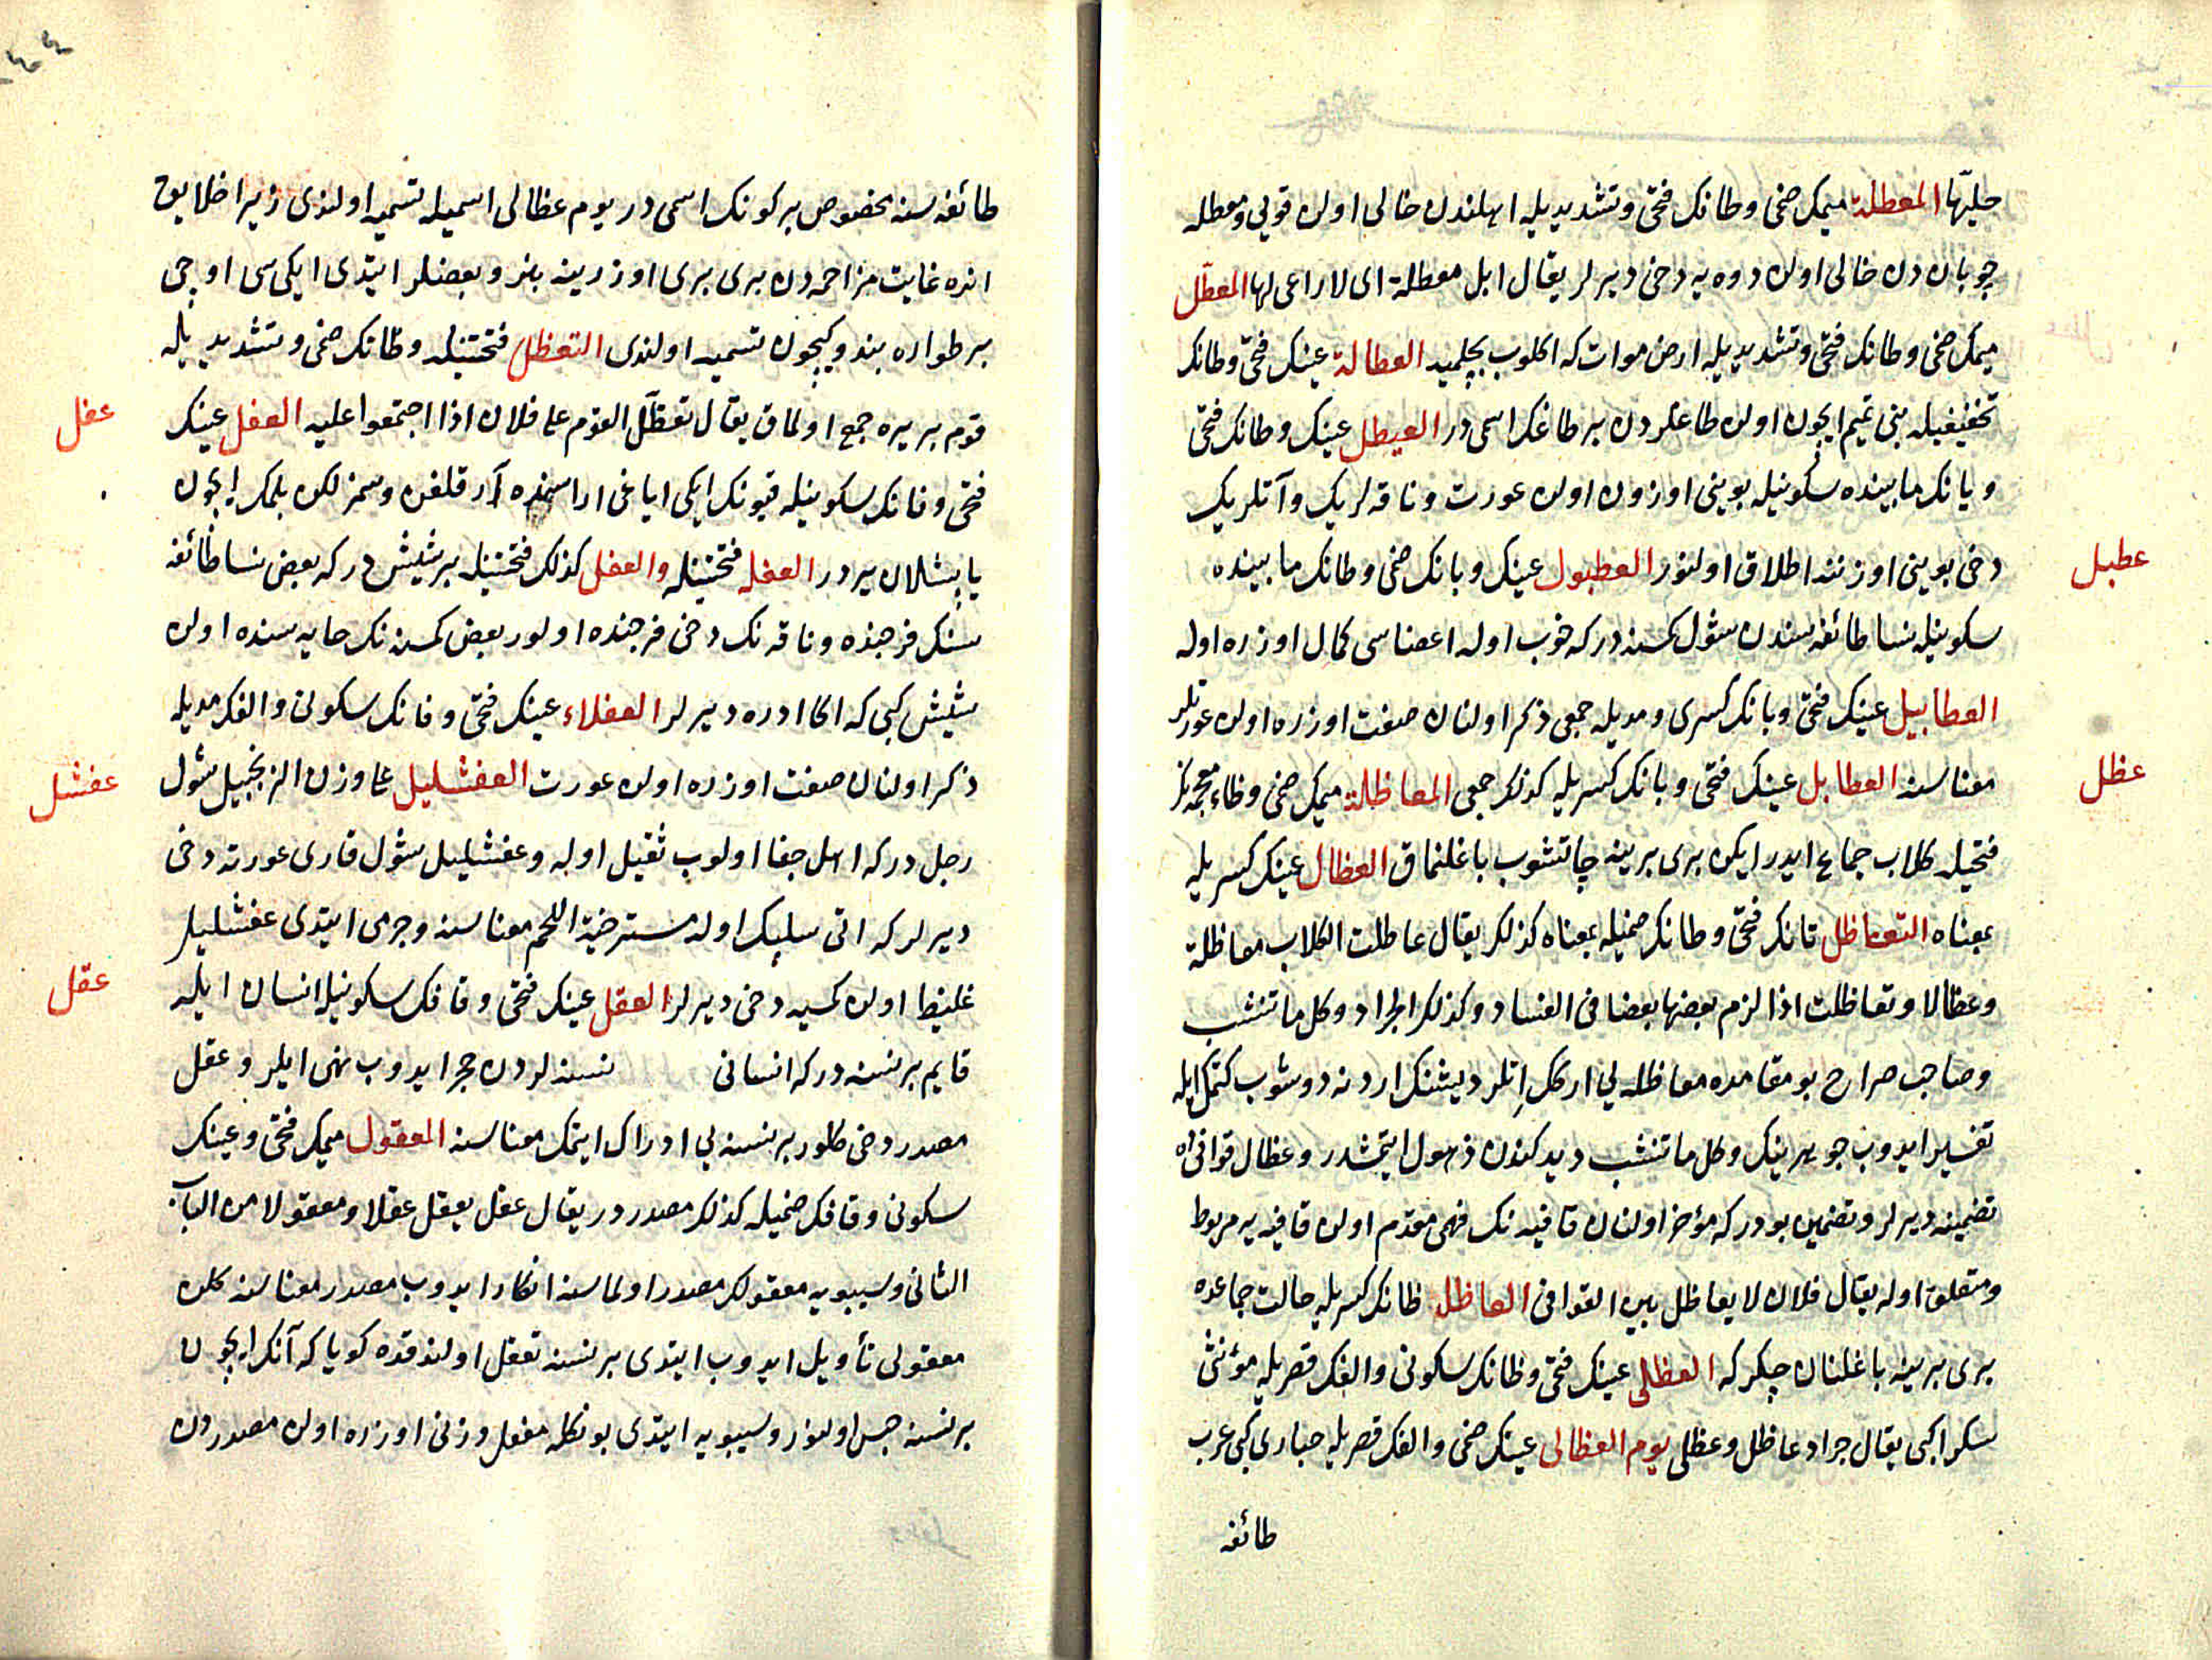 حليّها المعطلة ميمك ضمى وطانك فتحى وتشديديله اهلندن خالى اولن قويى ومعطله
چوبان دن خالى اولن دوه يه دخى ديرلر يقال ابل معطلة اى لا راعى لها المعطّل
ميمك ضمى وطانك فتحى وتشديديله ارض موات كه اكلوب بچلميد العطالة عينك فتحى وطانك
تخفيفيله بنى تميم ايچون اولن طاغلردن بر طاغك اسمى در العيطل عينك وطانك فتحى
ويانك مابينده سكونيله بوينى اوزون اولن عورت وناقه لريك وآتلريك
دخى بوينى اوزننه اطلاق اولنور العطبول عينك وبانك ضمى وطانك مابينده
سكونيله نسا طائفه سندن شول كسنه در كه خوب اوله اعضاسى كمال اوزره اوله
العطابيل عينك فتحى وبانك كسرى ومديله جمعى ذكر اولنان صفت اوزره اولن عورتلر
معناسنه العطابل عينك فتحى وبانك كسريله كذلك جمعى المعاظلة ميمك ضمى وظاء معجمه نك
فتحيله كلاب جماع ايدر ايكن برى برينه چاتشوب باغلنماق العظال عينك كسريله
بمعناه التعاظل تانك فتحى وظانك ضميله بمعناه كذلك يقال عاظلت الكلاب معاظلة
وعظالا وتعاظلت اذا لزم بعضها بعضا فى الفساد وكذلك الجراد وكل ما تنشب
وصاحب صراح بو مقامده معاظله يى ارككل اتلر ديشنك اردنه دوشوب كتمك ايله
تفسير ايدوب جوهرينك وكل ما تنشب ديدكندن ذهول ايتمشدر وعظال قوافىده
تضمينه ديرلر وتضمين بودر كه مؤخر اولنان قافيه نك فهمى مقدم اولن قافيه يه مربوط
ومتعلق اوله يقال فلان لا يعاظل بين القوافى العاظل ظانك كسريله حالت جماعده
برى برينه باغلنان چكركه العظلى عينك فتحى وظانك سكونى والفك قصريله مؤنثى
سكرا كبى يقال جراد عاظل وعظلى يوم العظالى عينك ضمى والفك قصريله حبارى كبى عرب
طائفه
عطبل
عظل
طائفه سنه مخصوص بر كونك اسمى در يوم عظالى اسميله تسميه اولندى زيرا خلايق
انده غايت مزاحمه دن برى برى اوزرينه بنر وبعضلر ايتدى ايكى سى اوچى
بر طواره بندوكيچون تسميه اولندى التعظل فتحتينله وظانك ضمى وتشديديله
قوم بر يره جمع اولماق يقال تعظّل القوم على فلان اذا اجتمعوا عليه العفل عينك
فتحى وفانك سكونيله قيونك ايكى اياغى اراسنده آر قلغن وسمزلكن بلمك ايچون
ياپشلان يردر العفله فتحتينله والعفل كذلك فتحتينله بر شيش در كه بعض نسا طائفه
سنك فرجنده وناقه نك دخى فرجنده اولور بعض كمسنه نك خايه سنده اولن
شيش كبى كه اكا ادره ديرلر العفلاء عينك فتحى وفانك سكونى والفك مديله
ذكر اولنان صفت اوزره اولن عورت العفشليل على وزن الزنجبيل شول
رجل در كه اهل جفا اولوب ثقيل اوله وعفشليل شول قارى عورته دخى
ديرلر كه اتى سلپك اوله مسترخية اللحم معناسنه وجرمى ايتدى عفشليل
غليظ اولن كسيه دخى ديرلر العقل عينك فتحى وقافك سكونيله انسان ايله
قايم بر نسنه در كه انسانى نسنه لردن حجر ايدوب نهى ايلر وعقل
مصدر دخى كلور بر نسنه يى ادراك ايتمك معناسنه المعقول ميمك فتحى وعينك
سكونى وقافك ضميله كذلك مصدر در يقال عقل يعقل عقلا ومعقولا من الباب
الثانى وسيبويه معقولك مصدر اولماسنه انكار ايدوب مصدر معناسنه كلن
معقولى تأويل ايدوب ايتدى بر نسنه تعقل اولندقده كويا كه آنك ايچون
بر نسنه حبس اولنور وسيبويه ايتدى بونكله مفعل وزنى اوزره اولن مصدردن
عفل
عفشل
عقل